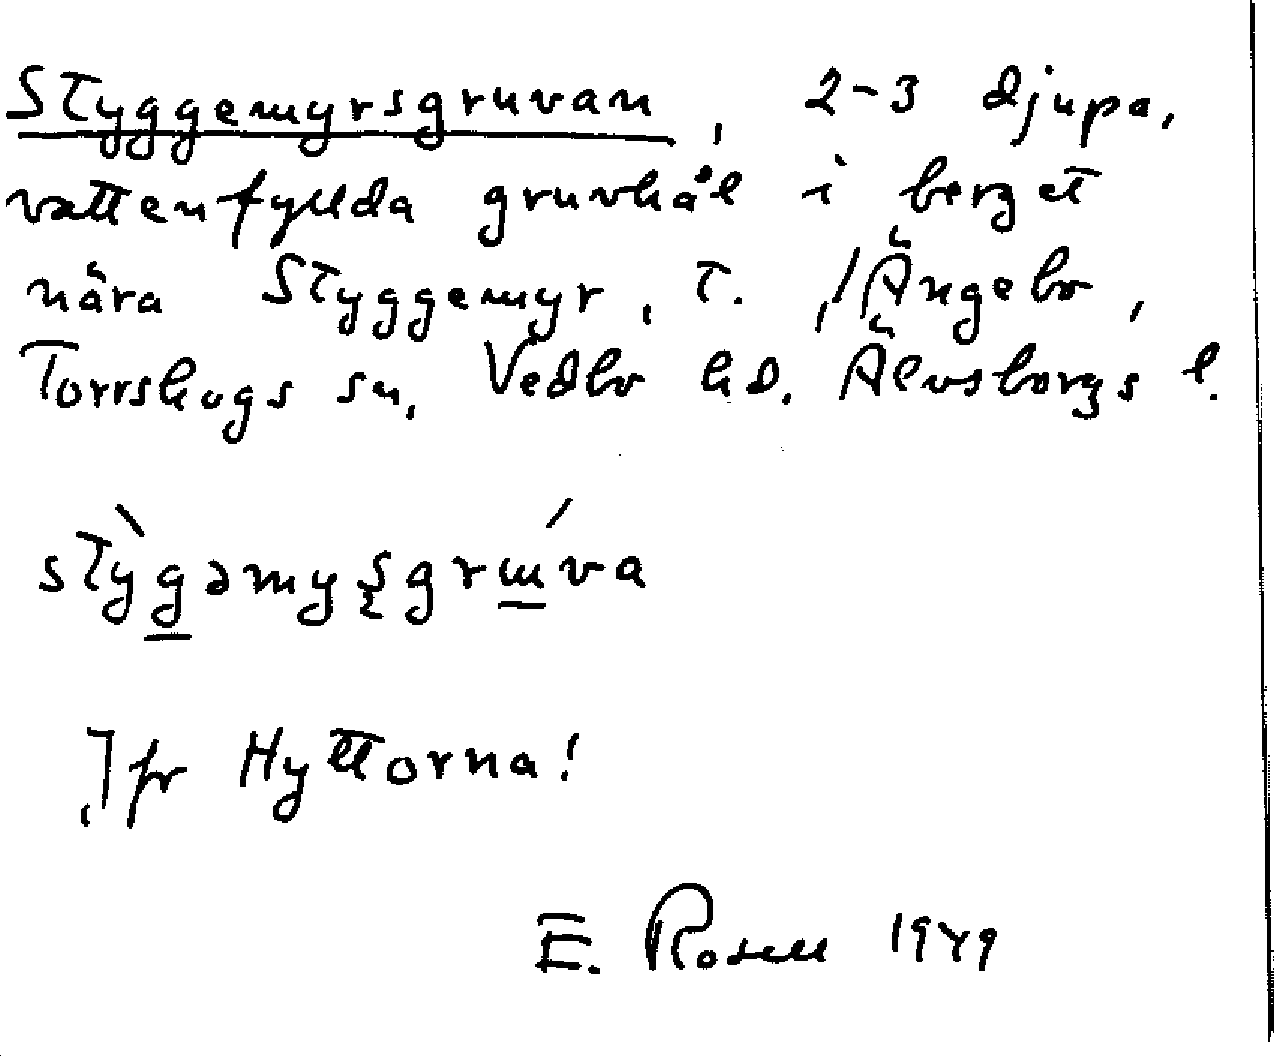 Styggemyrsgruvan, 2-3 djupa,
vattenfyllda gruvhål i berget
nära Styggemyr, t. Ängebo,
Torrskogs sn, Vedbo hd. Älvsborgs l.
stỳgəmyʂgrɯ́va
Jfr Hyttorna!
E. Rosell 1949